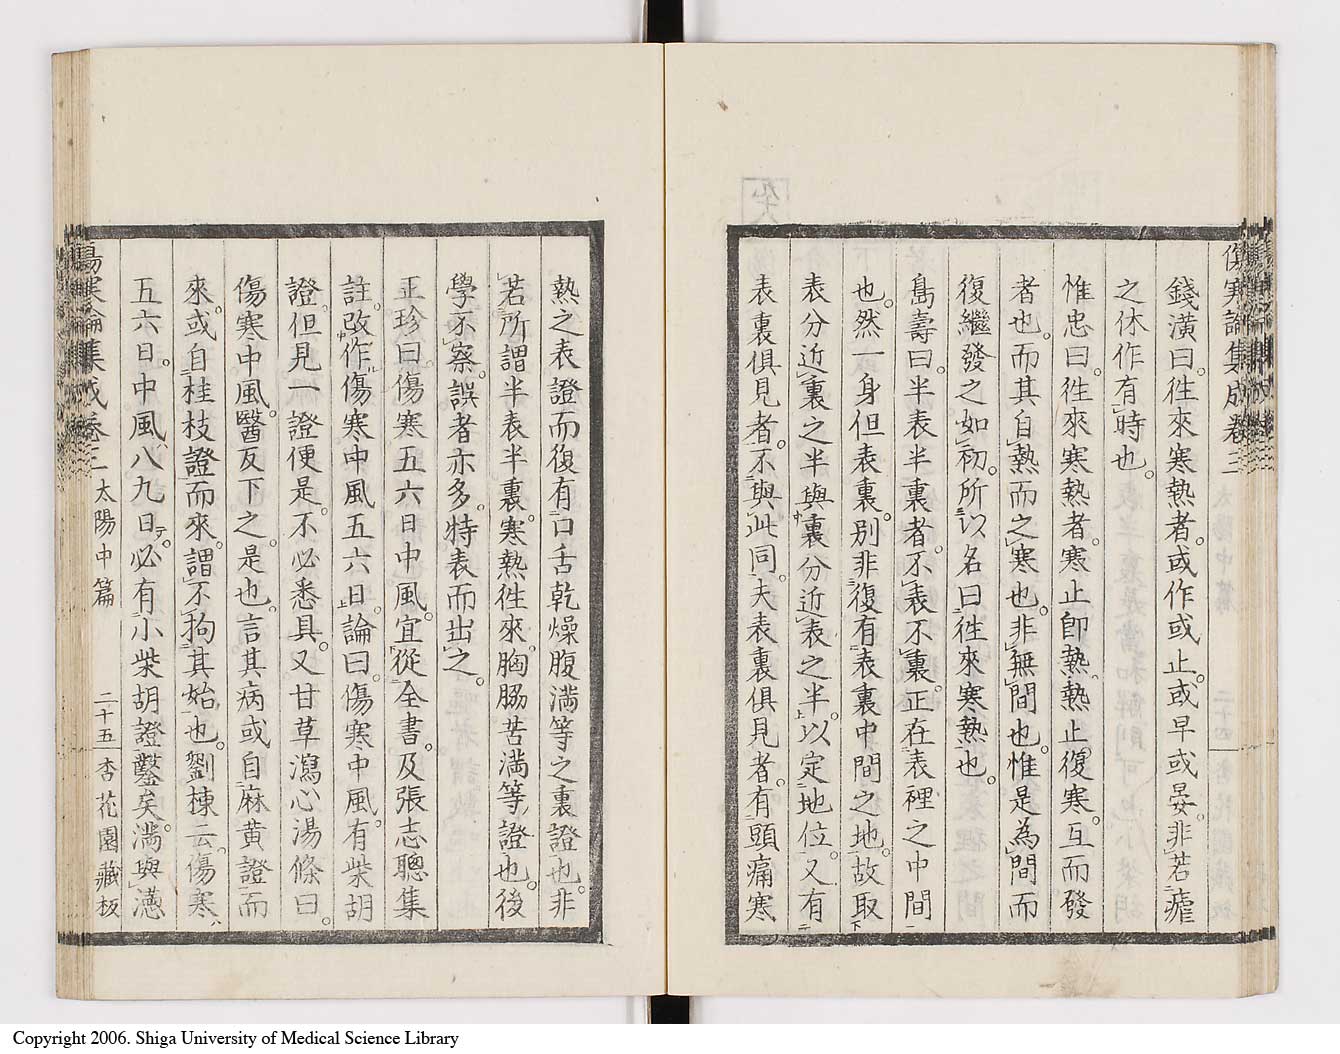 傷寒論集成卷三
錢潢曰。徃來寒熱者。或作或止。或早或晏。非若瘧
之休作有時也。
惟忠曰。徃來寒熱者。寒止卽熱。熱止復寒。互而發
者也。而其自熱而之寒也。非無間也。惟是為間而
復繼發之如初。所以名曰徃來寒熱也。
島壽曰。半表半裏者。不表不裏。正在表裡之中間
也。然一身但表裏。別非復有表裏中間之地。故取
表分近裏之半與裏分近表之半。以定地位。又有
表裏俱見者。不與此同。夫表裏俱見者。有頭痛寒
熱之表證而復有口舌乾燥腹滿等之裏證也。非
若所謂半表半裏。寒熱徃來。胸脇苦滿等證也。後
學不察。誤者亦多。特表而出之。
正珍曰。傷寒五六日中風。宜從全書。及張志聰集
註。改作傷寒中風五六日。論曰。傷寒中風。有柴胡
證。但見一證便是。不必悉具。又甘草瀉心湯條曰。
傷寒中風。醫反下之。是也。言其病或自麻黄證而
來。或自桂枝證而來。謂不拘其始也。劉棟云。傷寒
五六日。中風八九日。必有小柴胡證。鑿矣。滿與懣
傷寒論集成卷三 太陽中篇 二十五 杏花園藏板
Copyright 2006. Shiga University of Medical Science Library